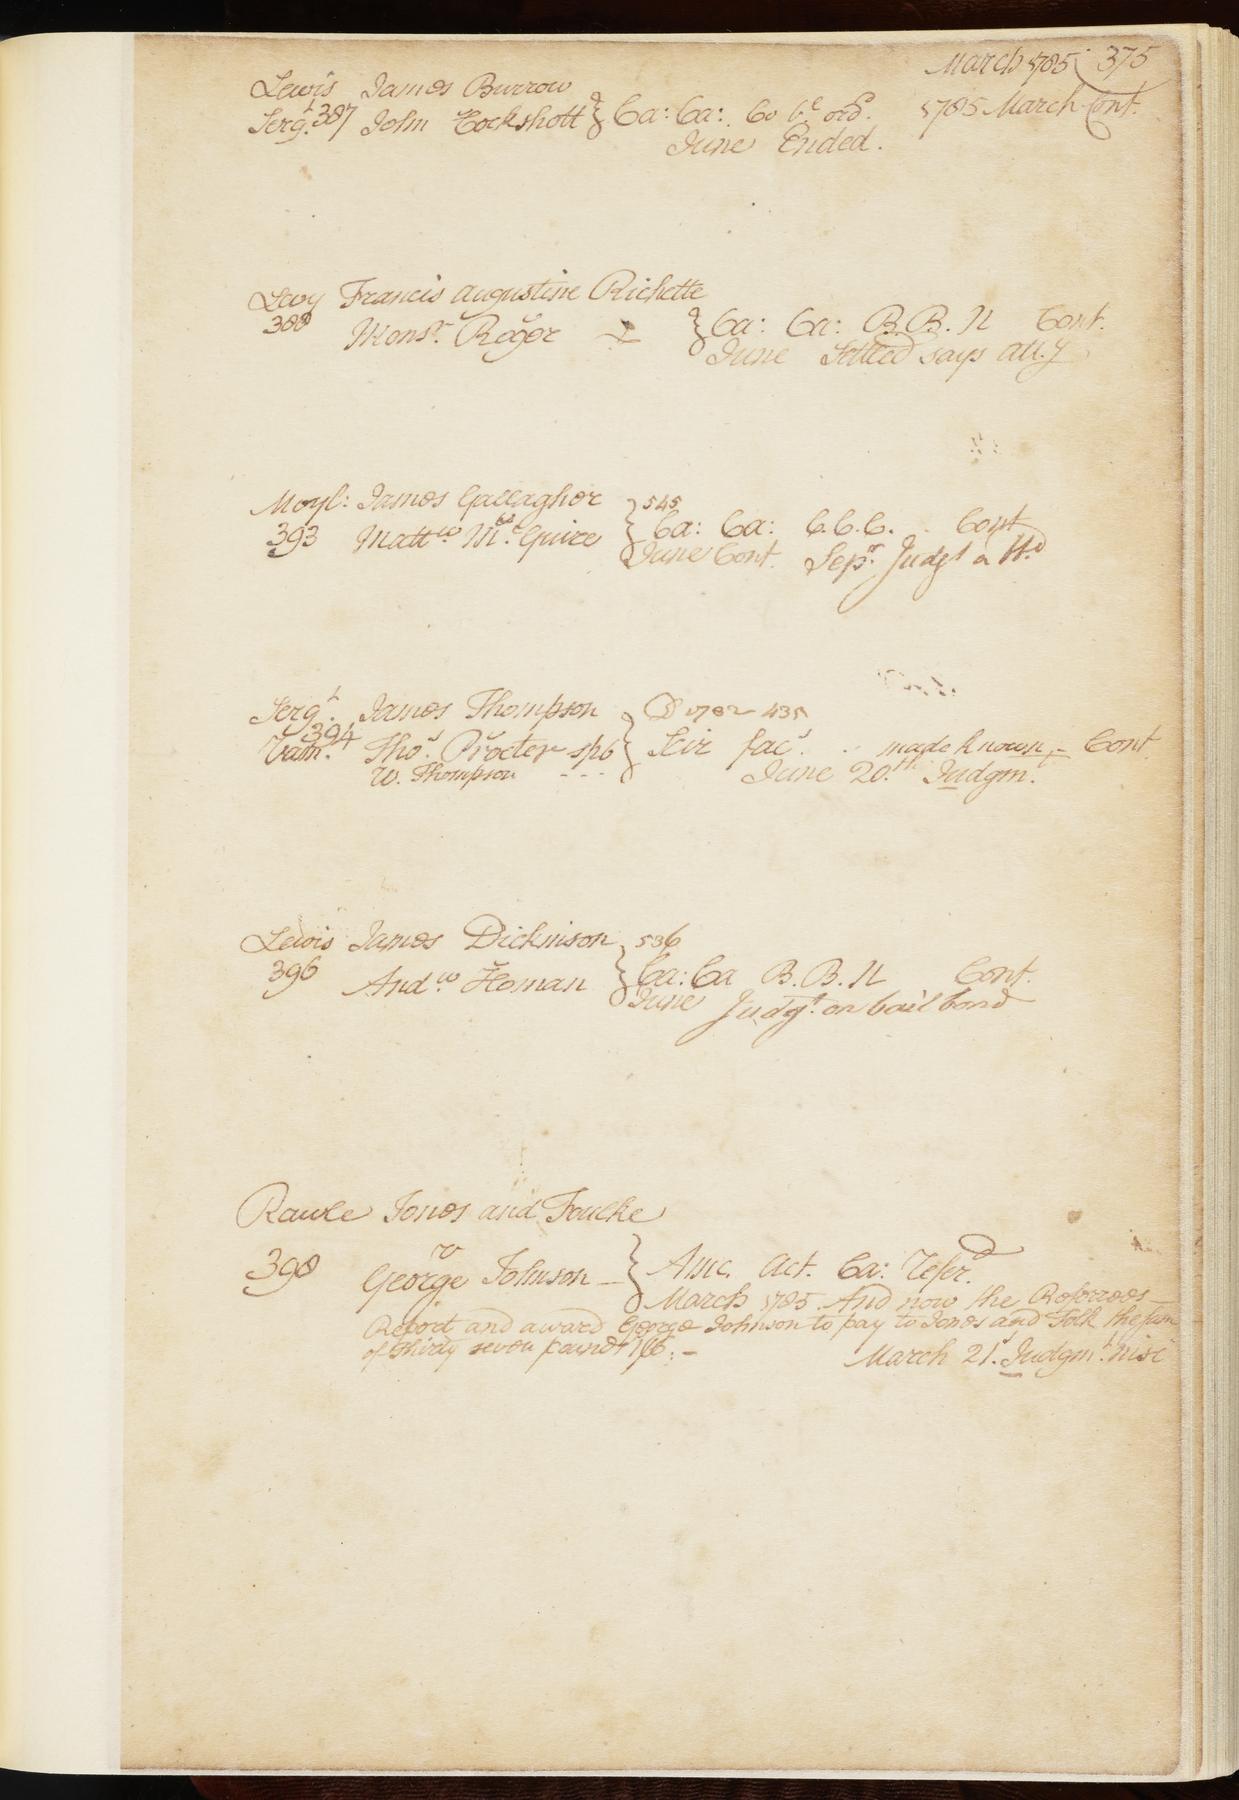 March 1785 375
Lewis James Burrow
Serg.t 387 John Cockshott } Ca: Ca: Co b.e ord. 1785 March Cont.
June Ended.
Levy Francis Augustine Richette
388 v
Mons.r Roger } Ca: Ca: B.B.N Cont.
June Settled says Att.y
Moyl: James Gallagher 545
393 Matt.w M.c Guire } Ca: Ca: C.C.C. Cont
June Cont. Sep.r Judg.t a
Serg.t James Thompson D 1782 435
394 Tho.s Procter spb } Scir fac.s made known Cont
W. Thompson June 20.th Judgm.t
Lewis James Dickinson 536
396 v
And.w Homan } Ca: Ca B.B.N Cont.
June Judg.t on bail bond
Rawle Jones and Foulke
398 v
George Johnson } Amc. Act. Ca: Refer.d
March 1785 And now the Referrees
Report and award George Johnson to pay to Jones and Folk the sum
of thirty seven pounds
March 21.st Judgm.t nisi